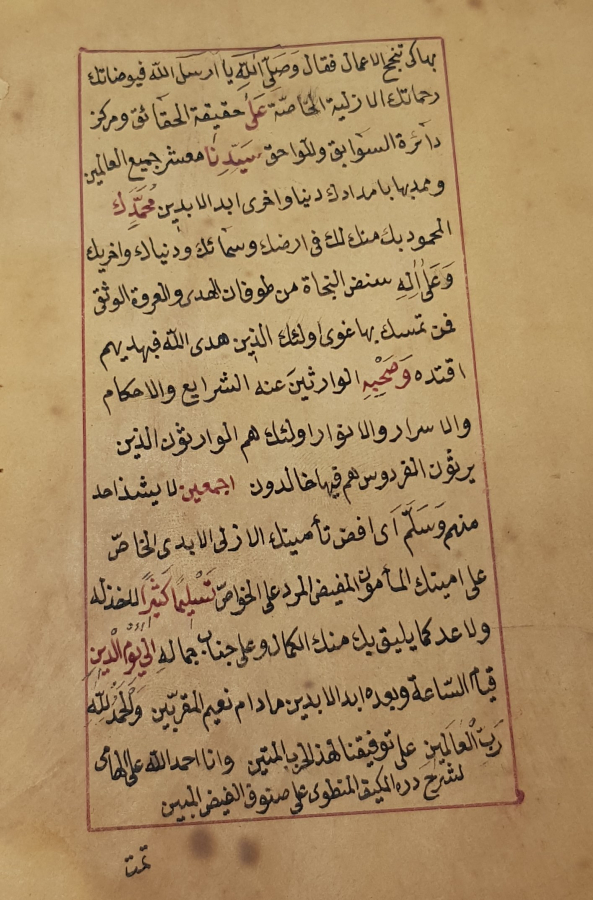 بهاكى تنجح الاعمال فقال وَصَلِّى اللّٰهِ يا ارسل الله فيوضاتك
رحماتك الازلية الخاصّة عَلَى حقيقة الحقائق ومركز
دائرة السوابق واللواحق سَيّدِنَا معشر جميع العالمين
وممدبها بامدادك دينا واخرى ابد الابدين مُحَمَّدٍ
المحمود بك منك لك فى ارضك وسمائك ودنياك واخريك
وَعَلَى اٰلِهِ سفن النجاة من طوفان الهدى والعروة الوثقى
فمن تمسك بها غوى اولئك الذين هدى الله فبهديهم
اقتده وَصَحْبِهِ الوارثينَ عنه الشرايع والاحكام
والاسرار والانوار اولئك هم الوارثون الذين
يرثون الفردوس هم فيها خالدون اجمعين لا يشذ احد
منهم وَسَلَّمْ اى افض تأمينك الازلى الابدى الخاصّ
على امينك المأمون المفيض المرد على الخواصّ تَسْلِيمًا كَثِيرًا
ولا عد كما يليق بك منك الكمال وعلى جناب جماله اِلىٰ يَوْمِ الدّينِ
قيام السّاعة وبعده ابد الابدين مادام نعيم المقربّين وَالْحَمْدُ لِلّٰهِ
رَبّ الْعَالَمِين على توفيقنا لهذ الحزب المتين وانا احمد الله على الهامى
لشرح درره المكين المنطوى على صنوف الفيض المبين
تمت